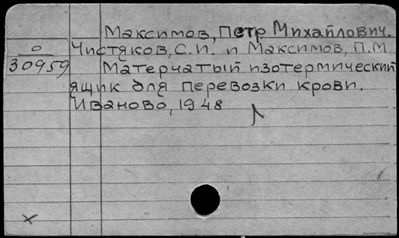 Максимов, Петр Михайлович.
о Чистяков, С.И. и Максимов, П.М.
30959 Матерчатый изотермический
ящик для перевозки крови.
Иваново, 1948
х